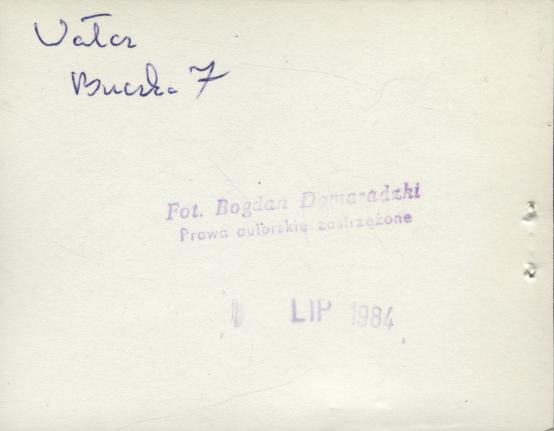 Wałcz
Buczka 7
Fot. Bogdan Domaradzki
Prawa autorskie zastrzeżone
LIP 1984